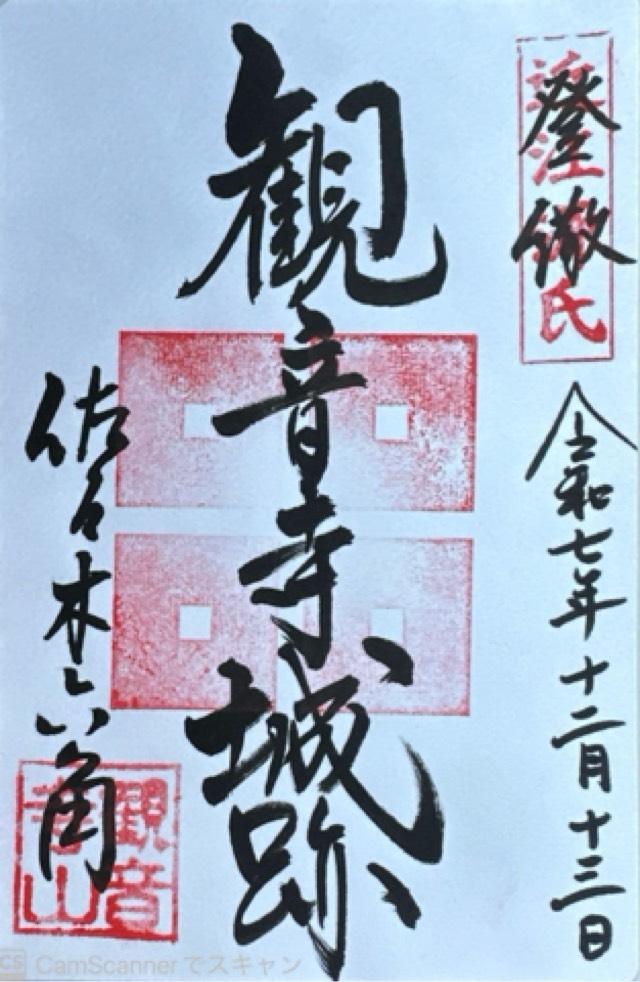 登繖
近江源氏
令和七年十二月十三日
観音寺城跡
佐々木六角
観音
寺山
CS CamScannerでスキャン